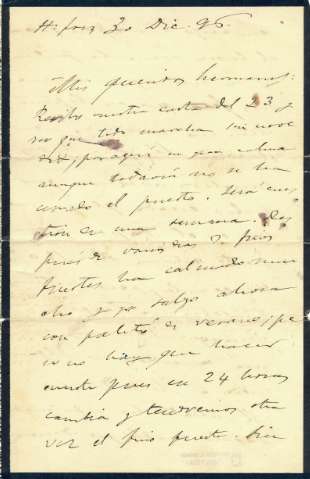 30 Dic. 96
Mis queridos hermanos:
Recibo vuestra carta del 23 y
veo que todo marcha sin nove
dad; por aquí en gran calma
aunque todavía no se ha
el puerto. Será cues
tión de una semana. Des
pues de varios días de fríos
fuertes ha calmado mu
cho y yo salgo ahora
con paletó de verano; pe
ro no hay que hacer
cuenta pues en 24 horas
cambia y tendremos otra
vez el frío fuerte. Sin